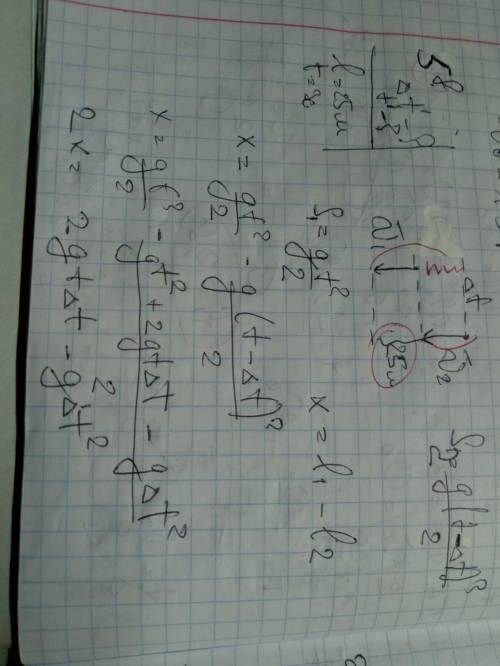 58
Δt - ?
l = 25м
t = 3с
Δt
25м
l₁ = gt²/2
l₂ = g(t-Δt)²/2
x = l₁ - l₂
x = gt²/2 - g(t-Δt)²/2
x = gt²/2 - gt² + 2gtΔt - gΔt²/2
2x = 2gtΔt - gΔt²/2